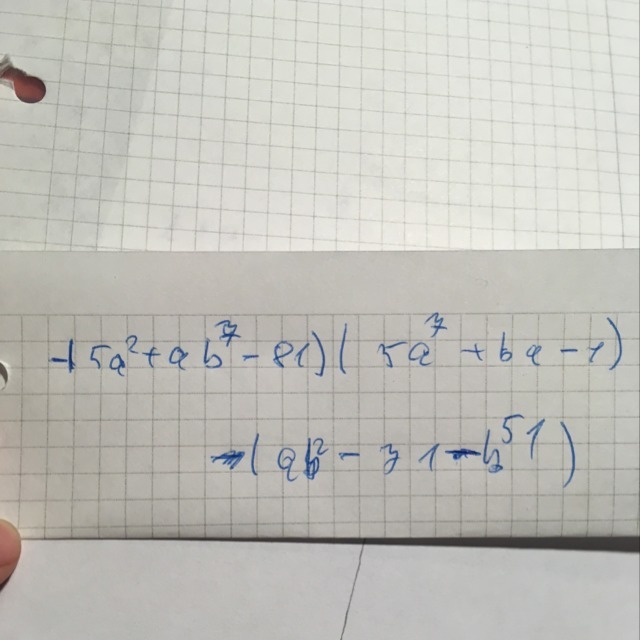 -(5a²+ab⁷-81)(5a⁷+ba-1)
-(ab²-31-b⁵¹)